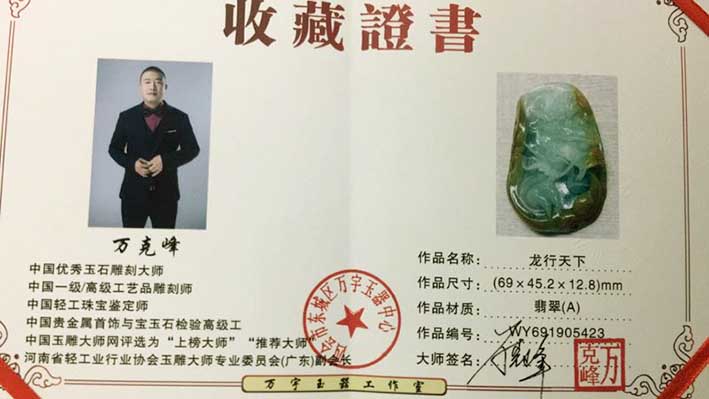 收藏證書
万克峰
中国优秀玉石雕刻大师
中国一级/高级工艺品雕刻师
中国轻工珠宝鉴定师
中国贵金属首饰与宝玉石检验高级工
中国玉雕大师网评选为“上榜大师”“推荐大师”
河南省轻工业行业协会玉雕大师专业委员会(广东)副会长
市东城区万宇玉器中心
作品名称： 龙行天下
作品尺寸： (69×45.2×12.8)mm
作品材质： 翡翠(A)
作品编号： WY691905423
大师签名：
万克峰
万宇玉器工作室